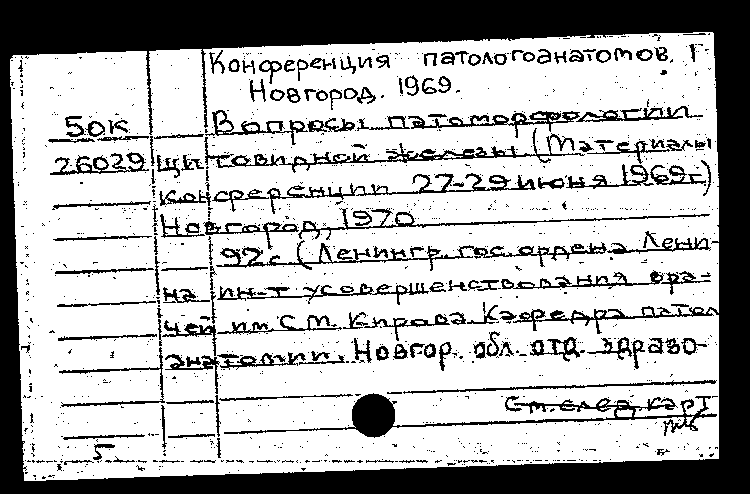 Конференция патологоанатомов. Г
Новгород. 1969.
50К Вопросы патоморфологии
26029 щитовидной железы (Материалы
конференции 27-29 июня 1969г)
Новгород, 1970
92с (Ленингр. гос. ордена Лени-
на ин-т усовершенствования вра-
чей им С.М. Кирова. Кафедра патол
анатомии. Новгор. обл. отд. здраво-
См. след. карт
5